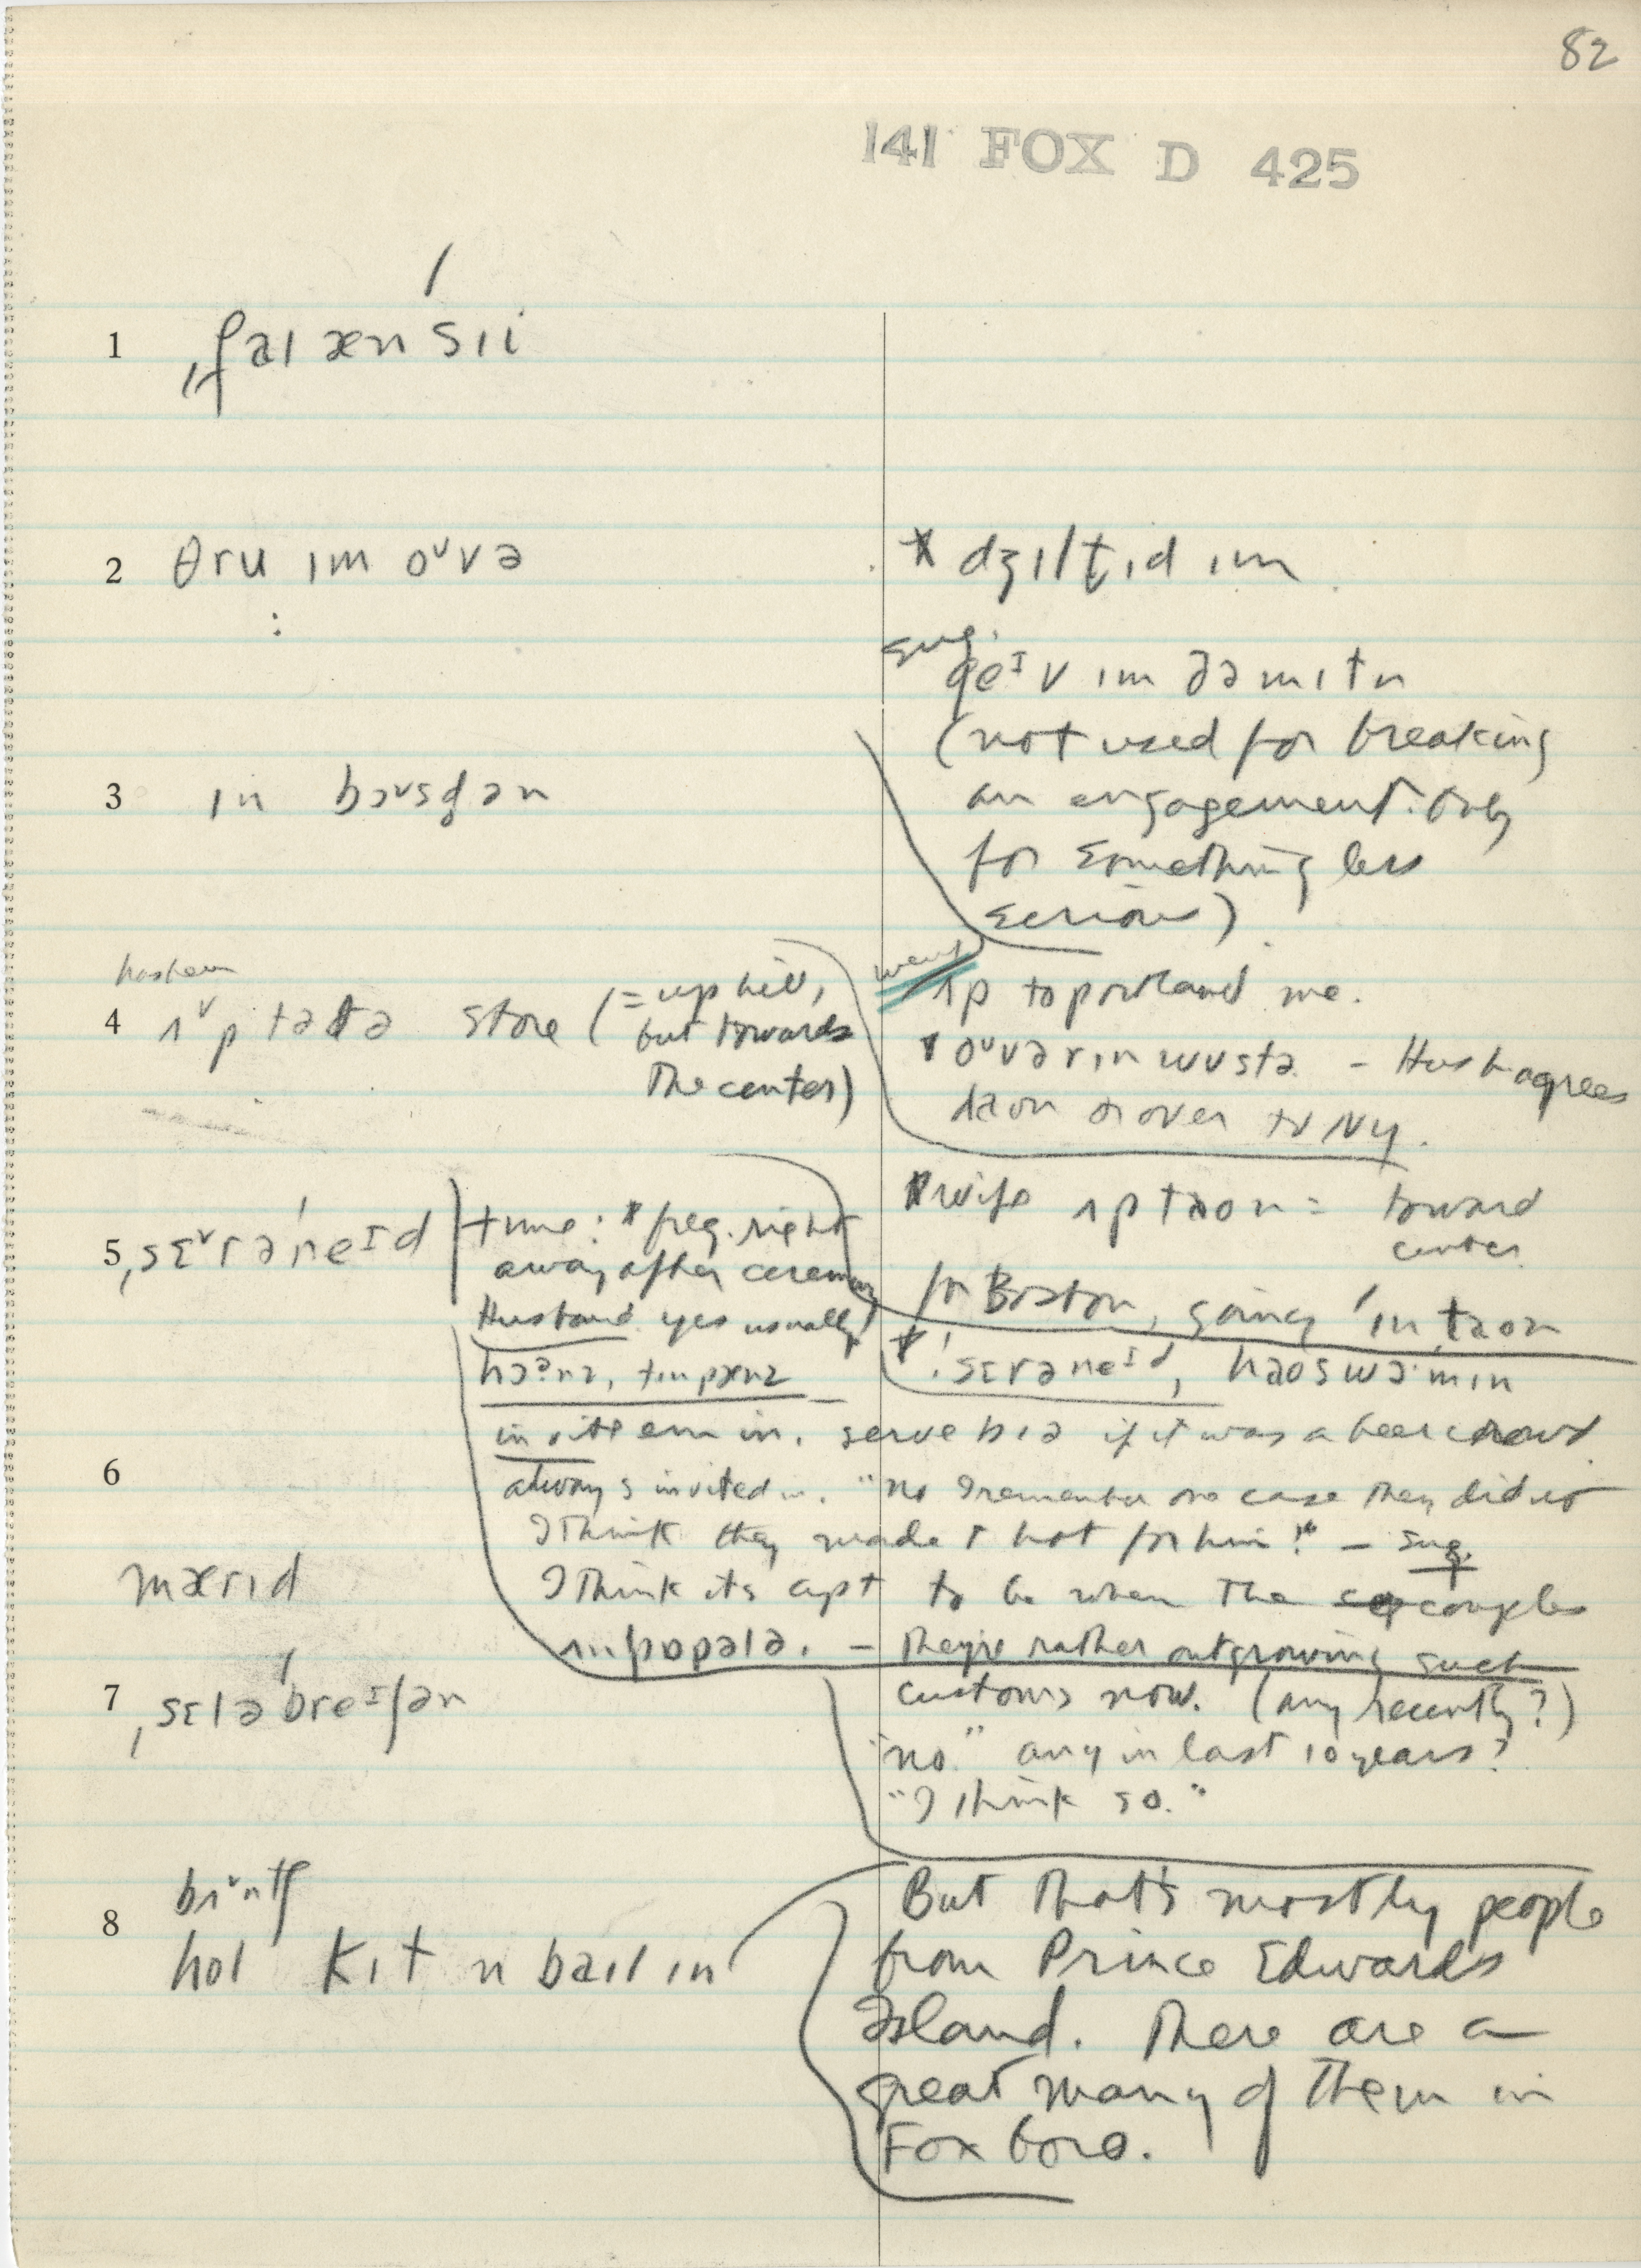 82
141 FOX D 425
1 ˌfaɪænˈsɪi
2 θru ɪm oᵘvə
* dʒɪltɪd ɪm
sug.
geᴵv ɪm ðəmɪtn
(not used for breaking
an engagement. Only
for something less
serious)
3 ɪn bɔᵛsʧən
husband
4 ʌᵛp tə ðə store (= up hill,
but towards
the center)
went
ʌp to portland me.
* oᵘvər ɪn wʊstə. – Husb agrees
daon or over to NY.
* wife ʌp taon = toward
center
for Boston, going ˈin taon
5 ˌsɛᵛrəˈneᴵd
time: * freq. right
away after ceremony
Husband yes usually
hɔʔnz, tɪnpænz
* ˈsɛrəneᴵd, haoswɔˈmɪn
invite em in. serve bɪə if it was a beer crowd
6
always invited in. "no I remember one case they did not
I think they made it hot for him!" – sug.
I think its apt to be when the couples
mærɪd
ʌnpɒpələ. – they're rather outgrowing such
customs now. (any recently?)
"no" any in last 10 years?
"I think so."
7 ˌsɛləˈbreᴵʃən
8 bʌᵛntʃ
hol kɪt n baɪlɪn
But that's mostly people
from Prince Edwards
Island. There are a
great many of them in
Foxboro.